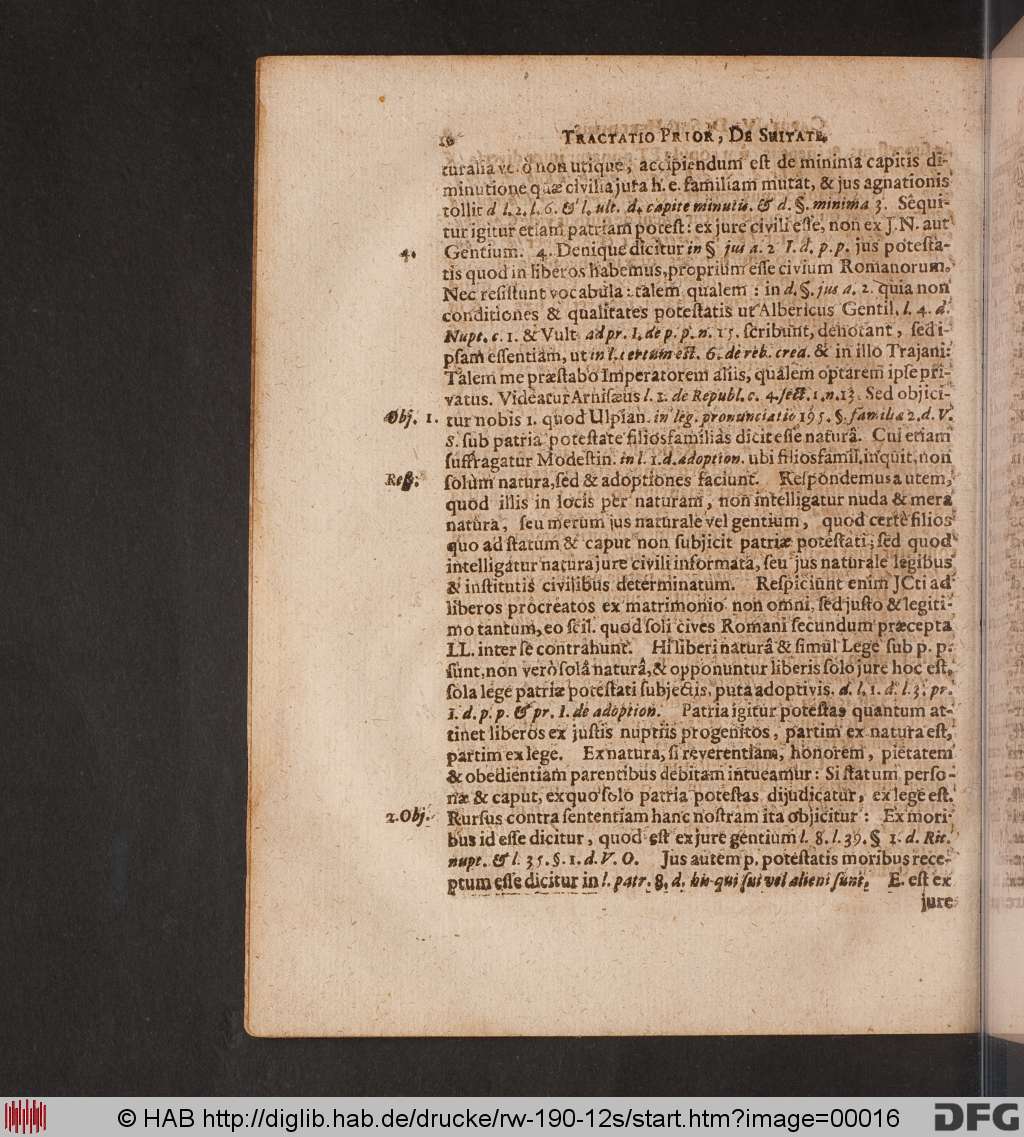 10
TRACTATIO PRIOR, DE SUITATE,
turalia verò non utique, accipiendum est de minima capitis di-
minutione quæ civilia jura h. e. familiam mutat, & jus agnationis
tollit d l. 2. l. 6. & l. ult. d. capite minutis. & d. §. minima 3. Sequi-
tur igitur etiam patriam potest: ex jure civili esse, non ex J. N. aut
4. Gentium. 4. Denique dicitur in § jus a. 2 I. d. p. p. jus potesta-
tis quod in liberos habemus, proprium esse civium Romanorum.
Nec resistunt vocabula: talem qualem: in d. §. jus a. 2. quia non
conditiones & qualitates potestatis ut Albericus Gentil. l. 4. d.
Nupt. c. 1. & Vult. ad pr. I. de p. p. n. 15. scribunt, denotant, sed i-
psam essentiam, ut in l. certum est. 6. de reb. cred. & in illo Trajani:
Talem me præstabo Imperatorem aliis, qualem optarem ipse pri-
vatus. Videatur Arnisæus l. 1. de Republ. c. 4. sect. 1. n. 13. Sed objici-
Obj. 1. tur nobis 1. quod Ulpian. in leg. pronunciatio 195. §. familia 2. d. V.
S. sub patria potestate filiosfamilias dicit esse naturâ. Cui etiam
suffragatur Modestin. in l. 1. d. adoption. ubi filiosfamil, inquit, non
Resp: solùm natura, sed & adoptiones faciunt. Respondemus autem,
quod illis in locis per naturam, non intelligatur nuda & mera
natura, seu merum jus naturale vel gentium, quod certè filios
quo ad statum & caput non subjicit patriæ potestati; sed quod
intelligatur natura jure civili informata, seu jus naturale legibus
& institutis civilibus determinatum. Respiciunt enim JCti ad
liberos procreatos ex matrimonio non omni, sed justo & legiti-
mo tantum, eo scil. quod soli cives Romani secundum præcepta
LL. inter se contrahunt. Hi liberi naturâ & simul Lege sub p. p.
sunt, non verò solâ naturâ, & opponuntur liberis solo jure hoc est,
sola lege patriæ potestati subjectis, puta adoptivis. d. l. 1. d. l. 3. pr.
I. d. p. p. & pr. I. de adoption. Patria igitur potestas quantum at-
tinet liberos ex justis nuptiis progenitos, partim ex natura est,
partim ex lege. Ex natura, si reverentiam, honorem, pietatem
& obedientiam parentibus debitam intueamur: Si statum perso-
næ & caput, ex quo solo patria potestas dijudicatur, ex lege est.
2. Obj. Rursus contra sententiam hanc nostram ita objicitur: Ex mori-
bus id esse dicitur, quod est ex jure gentium l. 8. l. 39. § 1. d. Rit.
nupt. & l. 35. §. 1. d. V. O. Jus autem p. potestatis moribus rece-
ptum esse dicitur in l. patr. 8. d. his qui sui vel alieni sunt, E. est ex
jure
© HAB http://diglib.hab.de/drucke/rw-190-12s/start.htm?image=00016
DFG